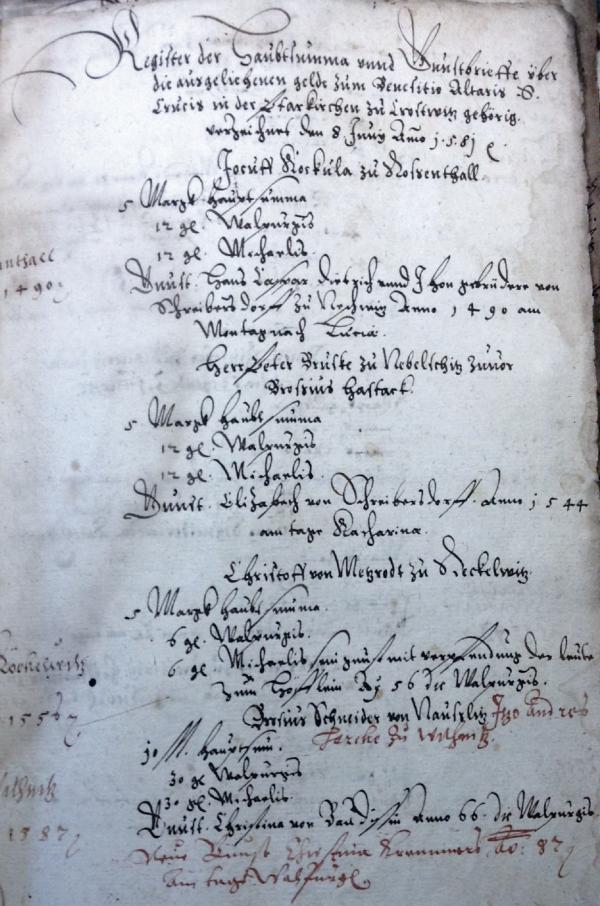 Register der Haubtsumma unnd Gunstbrieffe über
die ausgeliehenen gelde zum Beneficio Altaris S.
Crucis in der Pfarkirchen zu Crostwitz gehörig.
verzeichnet den 8 Juny Anno 1581
Jocuff Kockula zu Rossenthall
5 Margk haubtsumma
12 gl. Walpurgis
12 gl. Michaelis
1490
Gunst. Hans Caspar Dietzich unnd Jhon gebrüdere von
Schreibersdorff zu Nechwitz Anno 1490 am
Montag nach Lucia.
Herr Peter Bruske zu Nebelschitz zuvor
Brosius Hastack.
5 Margk haubtsumma
12 gl. Walpurgis
12 gl. Michaelis
Gunst. Elizabech von Schreibersdorff. Anno 1544
am tage Katharina.
Christoff von Metzrodt zu Steckelwitz
5 Margk haubtsumma.
6 gl. Walpurgis.
6 gl. Michaelis mit verpfendung der leute
zum Ao 56 die Walpurgis.
1556
Brosius Schneider von Nauslitz Jtzo Andres
zu
10 M. hauptsum.
30 gl Walpurgis
30 gl. Michaelis
1587
Gunst. Christina von Anno 66. die Walpurgis
Neue Gunst Christina Ao: 87
am tage Walpurg.